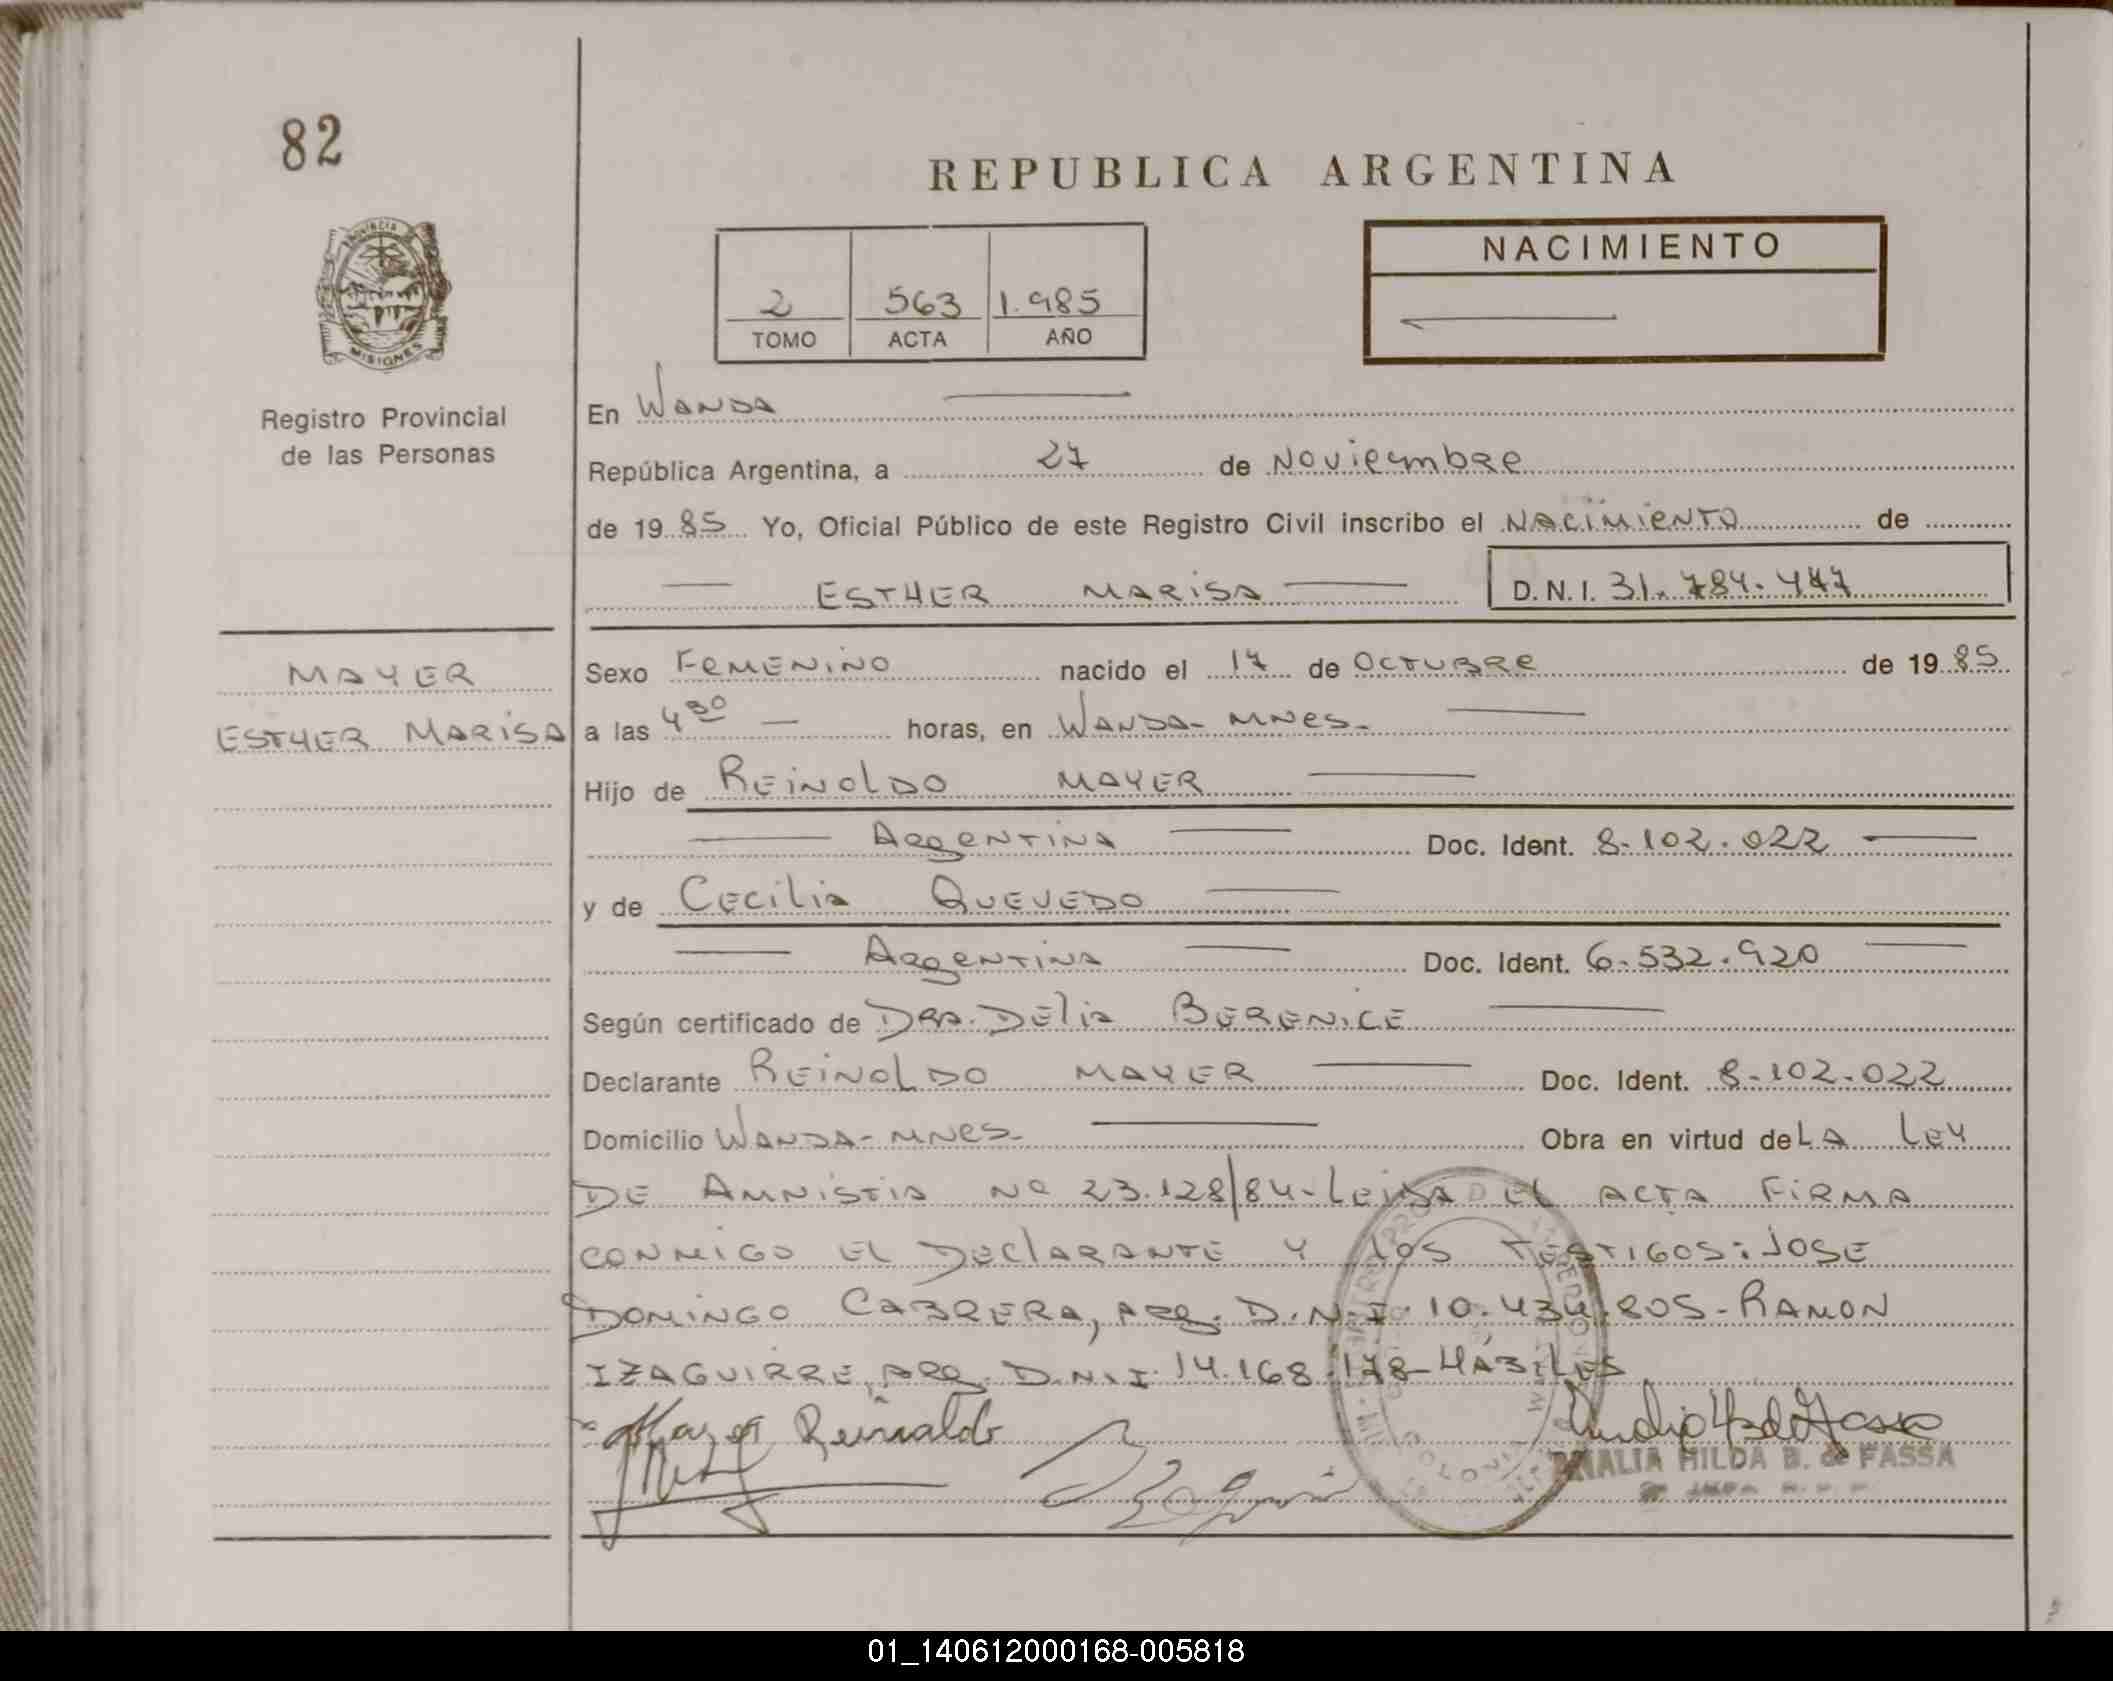 82
REPUBLICA ARGENTINA
PROVINCIA
MISIONES
Registro Provincial
de las Personas
2 563 1.985
TOMO ACTA AÑO
NACIMIENTO
En WANDA
República Argentina, a 27 de Noviembre
de 1985 Yo, Oficial Público de este Registro Civil inscribo el NACIMIENTO de
ESTHER MARISA D.N.I. 31.784.447
MAYER
ESTHER MARISA
Sexo FEMENINO nacido el 17 de OCTUBRE de 1985
a las 4 30 horas, en WANDA - MNES.
Hijo de REINOLDO MAYER
ARGENTINA Doc. Ident. 8.102.022
y de CECILIA QUEVEDO
ARGENTINA Doc. Ident. 6.532.920
Según certificado de DRA. DELIA BERENICE
Declarante REINOLDO MAYER Doc. Ident. 8.102.022
Domicilio WANDA - MNES. Obra en virtud de LA LEY
DE AMNISTIA Nº 23.128/84 - LEIDA EL ACTA FIRMA
CONMIGO EL DECLARANTE Y LOS TESTIGOS: JOSE
DOMINGO CABRERA, ARG. D.N.I. 10.434.805 - RAMON
IZAGUIRRE, ARG. D.N.I. 14.168.178 - HÁBILES
Mayer Reinaldo
AMALIA HILDA B. de FASSA
01_140612000168-005818